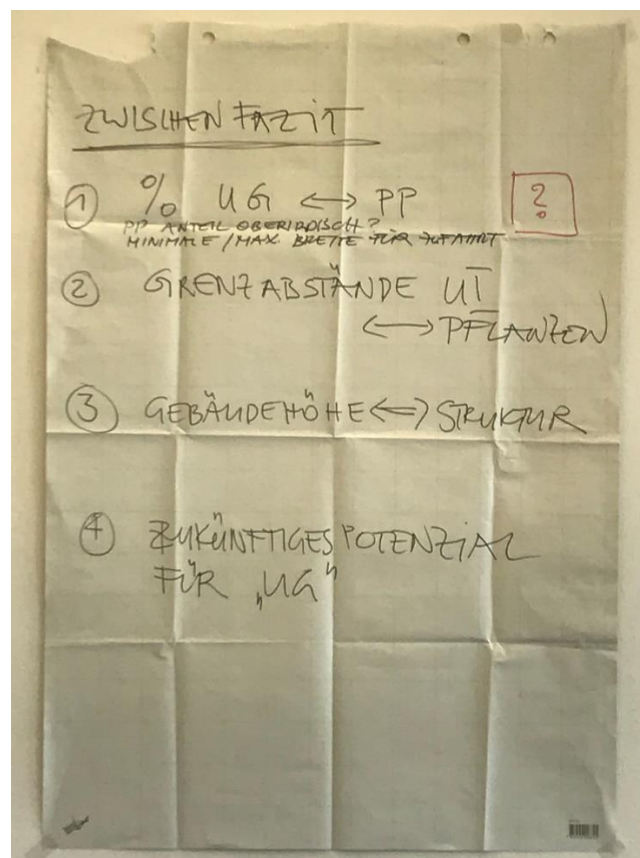 ZWISCHENFAZIT
① % UG ⟷ PP
?
PP ANTEIL OBERIRDISCH?
MINIMALE / MAX. BREITE FÜR ZUFAHRT
② GRENZABSTÄNDE UT
⟷ PFLANZEN
③ GEBÄUDEHÖHE ⟷ STRUKTUR
④ ZUKÜNFTIGES POTENZIAL
FÜR „UG"